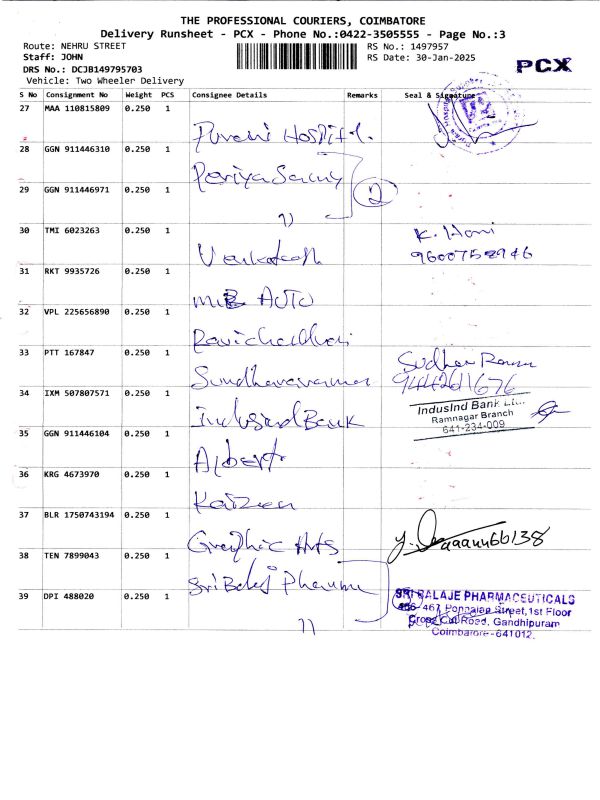 THE PROFESSIONAL COURIERS, COIMBATORE
Delivery Runsheet - PCX - Phone No.:0422-3505555 - Page No.:3
Route: NEHRU STREET
RS No.: 1497957
Staff: JOHN
RS Date: 30-Jan-2025
DRS No.: DCJB149795703
PCX
Vehicle: Two Wheeler Delivery
S No Consignment No Weight PCS Consignee Details Remarks Seal & Signature
27 MAA 110815809 0.250 1
Hospital
28 GGN 911446310 0.250 1
Periyasamy
29 GGN 911446971 0.250 1
2
30 TMI 6023263 0.250 1
K. Hani
Venkatesh
9600758946
31 RKT 9935726 0.250 1
AUTO
32 VPL 225656890 0.250 1
33 PTT 167847 0.250 1
9442611676
34 IXM 507807571 0.250 1
IndusInd Bank
IndusInd Bank
Ramnagar Branch
641-234-009
35 GGN 911446104 0.250 1
Albert
36 KRG 4673970 0.250 1
Kaizen
37 BLR 1750743194 0.250 1
Graphic Arts
38 TEN 7899043 0.250 1
Sri Balaji Pharma
39 DPI 488020 0.250 1
SRI BALAJE PHARMACEUTICALS
Street, 1st Floor
Cross Cut Road, Gandhipuram
Coimbatore-641012.